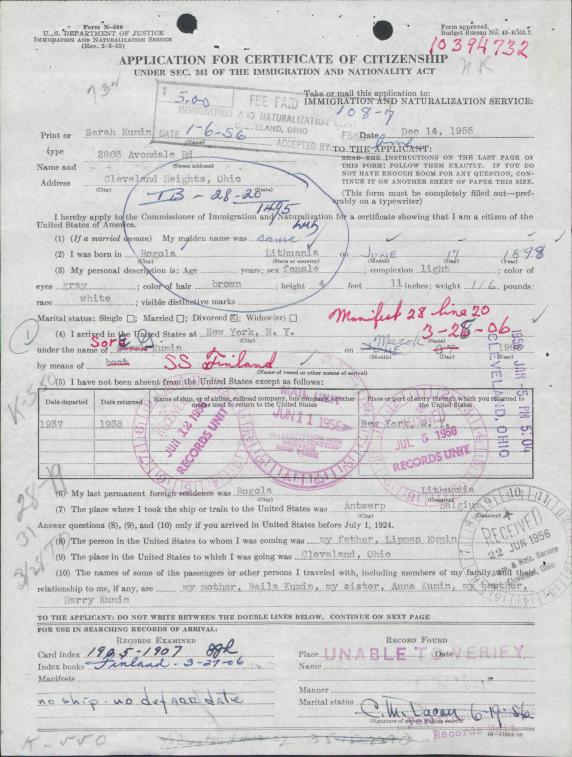 Form N-600
U.S. DEPARTMENT OF JUSTICE
IMMIGRATION AND NATURALIZATION SERVICE
(Rev. 2-8-53)
Form approved.
Budget Bureau No. 43-R105.7.
10394732
APPLICATION FOR CERTIFICATE OF CITIZENSHIP
UNDER SEC. 341 OF THE IMMIGRATION AND NATIONALITY ACT
Take or mail this application to:
IMMIGRATION AND NATURALIZATION SERVICE:
$ 5.00 FEE PAID
IMMIGRATION AND NATURALIZATION
CLEVELAND, OHIO
DATE 1-6-56 ACCEPTED BY
108-7
Date Dec 14, 1955
Print or
type
Name and
Address
Sarah Kumin
(Name)
2803 Avondale Rd
(Street address)
Cleveland Heights, Ohio
(City) (State)
TO THE APPLICANT:
READ THE INSTRUCTIONS ON THE LAST PAGE OF
THIS FORM: FOLLOW THEM EXACTLY. IF YOU DO
NOT HAVE ENOUGH ROOM FOR ANY QUESTION, CONTINUE
IT ON ANOTHER SHEET OF PAPER THIS SIZE.
(This form must be completely filled out—preferably
on a typewriter)
IB - 28-20
1495
I hereby apply to the Commissioner of Immigration and Naturalization for a certificate showing that I am a citizen of the
United States of America.
(1) (If a married woman) My maiden name was same
(2) I was born in Rogola Lithuania on JUNE 17 1898
(City) (State or country) (Month) (Day) (Year)
(3) My personal description is: Age years; sex female; complexion light; color of
eyes gray; color of hair brown; height 4 feet 11 inches; weight 116 pounds;
race white; visible distinctive marks
Marital status: Single Married Divorced Widow(er)
Manifest 28 line 20
3-28-06
(4) I arrived in the United States at New York, N. Y.
(City) (State)
under the name of Sarah Kumin on March 1906
(Month) (Day) (Year)
by means of boat SS Finland
(Name of vessel or other means of arrival)
(5) I have not been absent from the United States except as follows:
Date departed Date returned Name of ship, or of airline, railroad company, bus company, or other means used to return to the United States Place or port of entry through which you returned to the United States
1937 1938 New York, N. Y.
JUN 12 1956
RECORDS UNIT
JUN 11 1956
NEW YORK
JUL 5 1956
RECORDS UNIT
1956 JAN -5 PM 5 04
CLEVELAND, OHIO
(6) My last permanent foreign residence was Rogola Lithuania
(City) (Country)
(7) The place where I took the ship or train to the United States was Antwerp Belgium
(City) (Country)
Answer questions (8), (9), and (10) only if you arrived in the United States before July 1, 1924.
(8) The person in the United States to whom I was coming was my father, Lipman Kumin
(9) The place in the United States to which I was going was Cleveland, Ohio
(10) The names of some of the passengers or other persons I traveled with, including members of my family, and their
relationship to me, if any, are my mother, Baila Kumin, my sister, Anna Kumin, my brother,
Harry Kumin
RECEIVED
22 JUN 1956
TO THE APPLICANT: DO NOT WRITE BETWEEN THE DOUBLE LINES BELOW. CONTINUE ON NEXT PAGE
FOR USE IN SEARCHING RECORDS OF ARRIVAL:
RECORDS EXAMINED
Card index 1905-1907
Index books Finland - 3-27-06
Manifests
no ship - no def arr date
RECORD FOUND
Place Date
UNABLE TO VERIFY
Name
Manner
Marital status
6-19-56
Records Unit